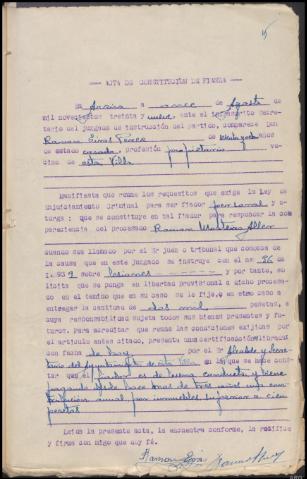 ACTA DE CONSTITUCIÓN DE FIANZA
En Arzúa a once de Agosto de
mil novecientos treinta y nueve ante el infrascrito Secre-
tario del juzgado de instrucción del partido, comparece Don
Ramon de años
de estado casado, profesión propietario ve-
cino de esta Villa
Manifiesta que reune los requisitos que exige la Ley de
Enjuiciamiento Criminal para ser fiador personal y
otorga: que se constituye en tal fiador para responder la com
parencia del procesado Ramon
cuando sea llamado por el Sr juez o tribunal que conozca de
la causa que en este juzgado se instruye con el nº 86 de
1.939 sobre lesiones y por tanto, en
libertad provisional a dicho procesa-
do en el término que en su caso se le fije, o en otro caso a
entregar la cantidad de dos mil pesetas, a
cuya responsabilidad sujeta todos sus bienes presentes y fu-
turos. Para acreditar que reune las condiciones exijidas por
el artículo antes citado, presenta una certificación librada
con fecha de hoy por el Sr Alcalde y Secre-
tario del Ayuntamiento de esta Villa en la que se hace cons-
tar que el fiador es de buena conducta y viene
pagando desde hace mas de tres años una con-
tribucion anual por inmuebles superior a cien
pesetas
Leida la presente acta, la encuentra conforme, la ratifica
y firma con migo que doy fé.
Ramon